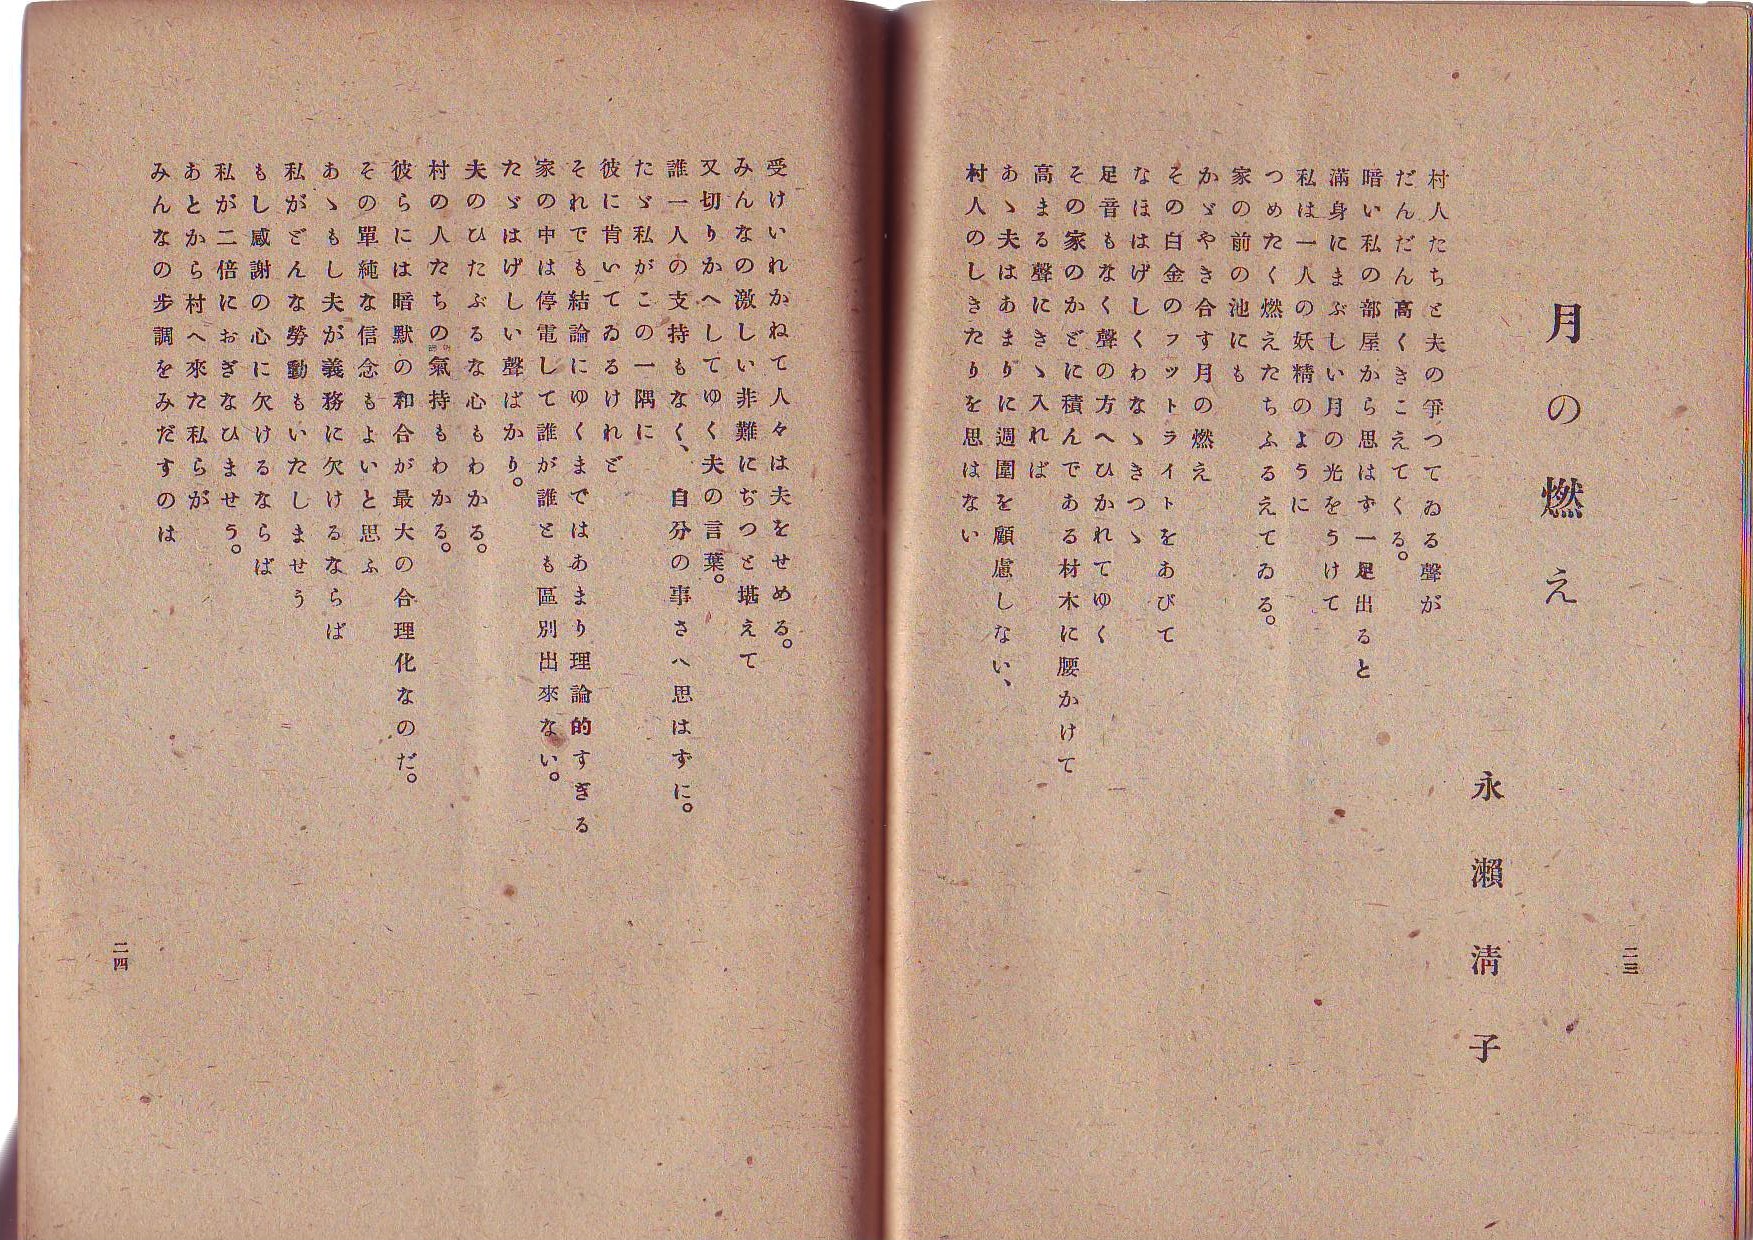 月の燃え
永瀨淸子
村人たちと夫の爭つてゐる聲が
だんだん高くきこえてくる。
暗い私の部屋から思はず一足出ると
滿身にまぶしい月の光をうけて
私は一人の妖精のように
つめたく燃えたちふるえてゐる。
家の前の池にも
かゞやき合す月の燃え
その白金のフットライトをあびて
なほはげしくわなゝきつゝ
足音もなく聲の方へひかれてゆく
その家のかどに積んである材木に腰かけて
高まる聲にきゝ入れば
あゝ夫はあまりに週圍を顧慮しない、
村人のしきたりを思はない
二三
受けいれかねて人々は夫をせめる。
みんなの激しい非難にぢつと堪えて
又切りかへしてゆく夫の言葉。
誰一人の支持もなく、自分の事さへ思はずに。
たゞ私がこの一隅に
彼に肯いてゐるけれど
それでも結論にゆくまではあまり理論的すぎる
家の中は停電して誰が誰とも區別出來ない。
たゞはげしい聲ばかり。
夫のひたぶるな心もわかる。
村の人たちの氣持もわかる。
彼らには暗默の和合が最大の合理化なのだ。
その單純な信念もよいと思ふ
あゝもし夫が義務に欠けるならば
私がどんな勞動もいたしませう
もし感謝の心に欠けるならば
私が二倍におぎなひませう。
あとから村へ來た私らが
みんなの步調をみだすのは
二四